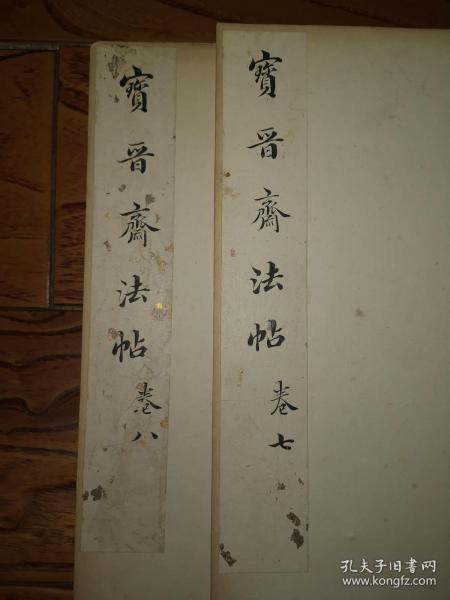 寶晉齋法帖 卷七
寶晉齋法帖 卷八
孔夫子旧书网
www.kongfz.com